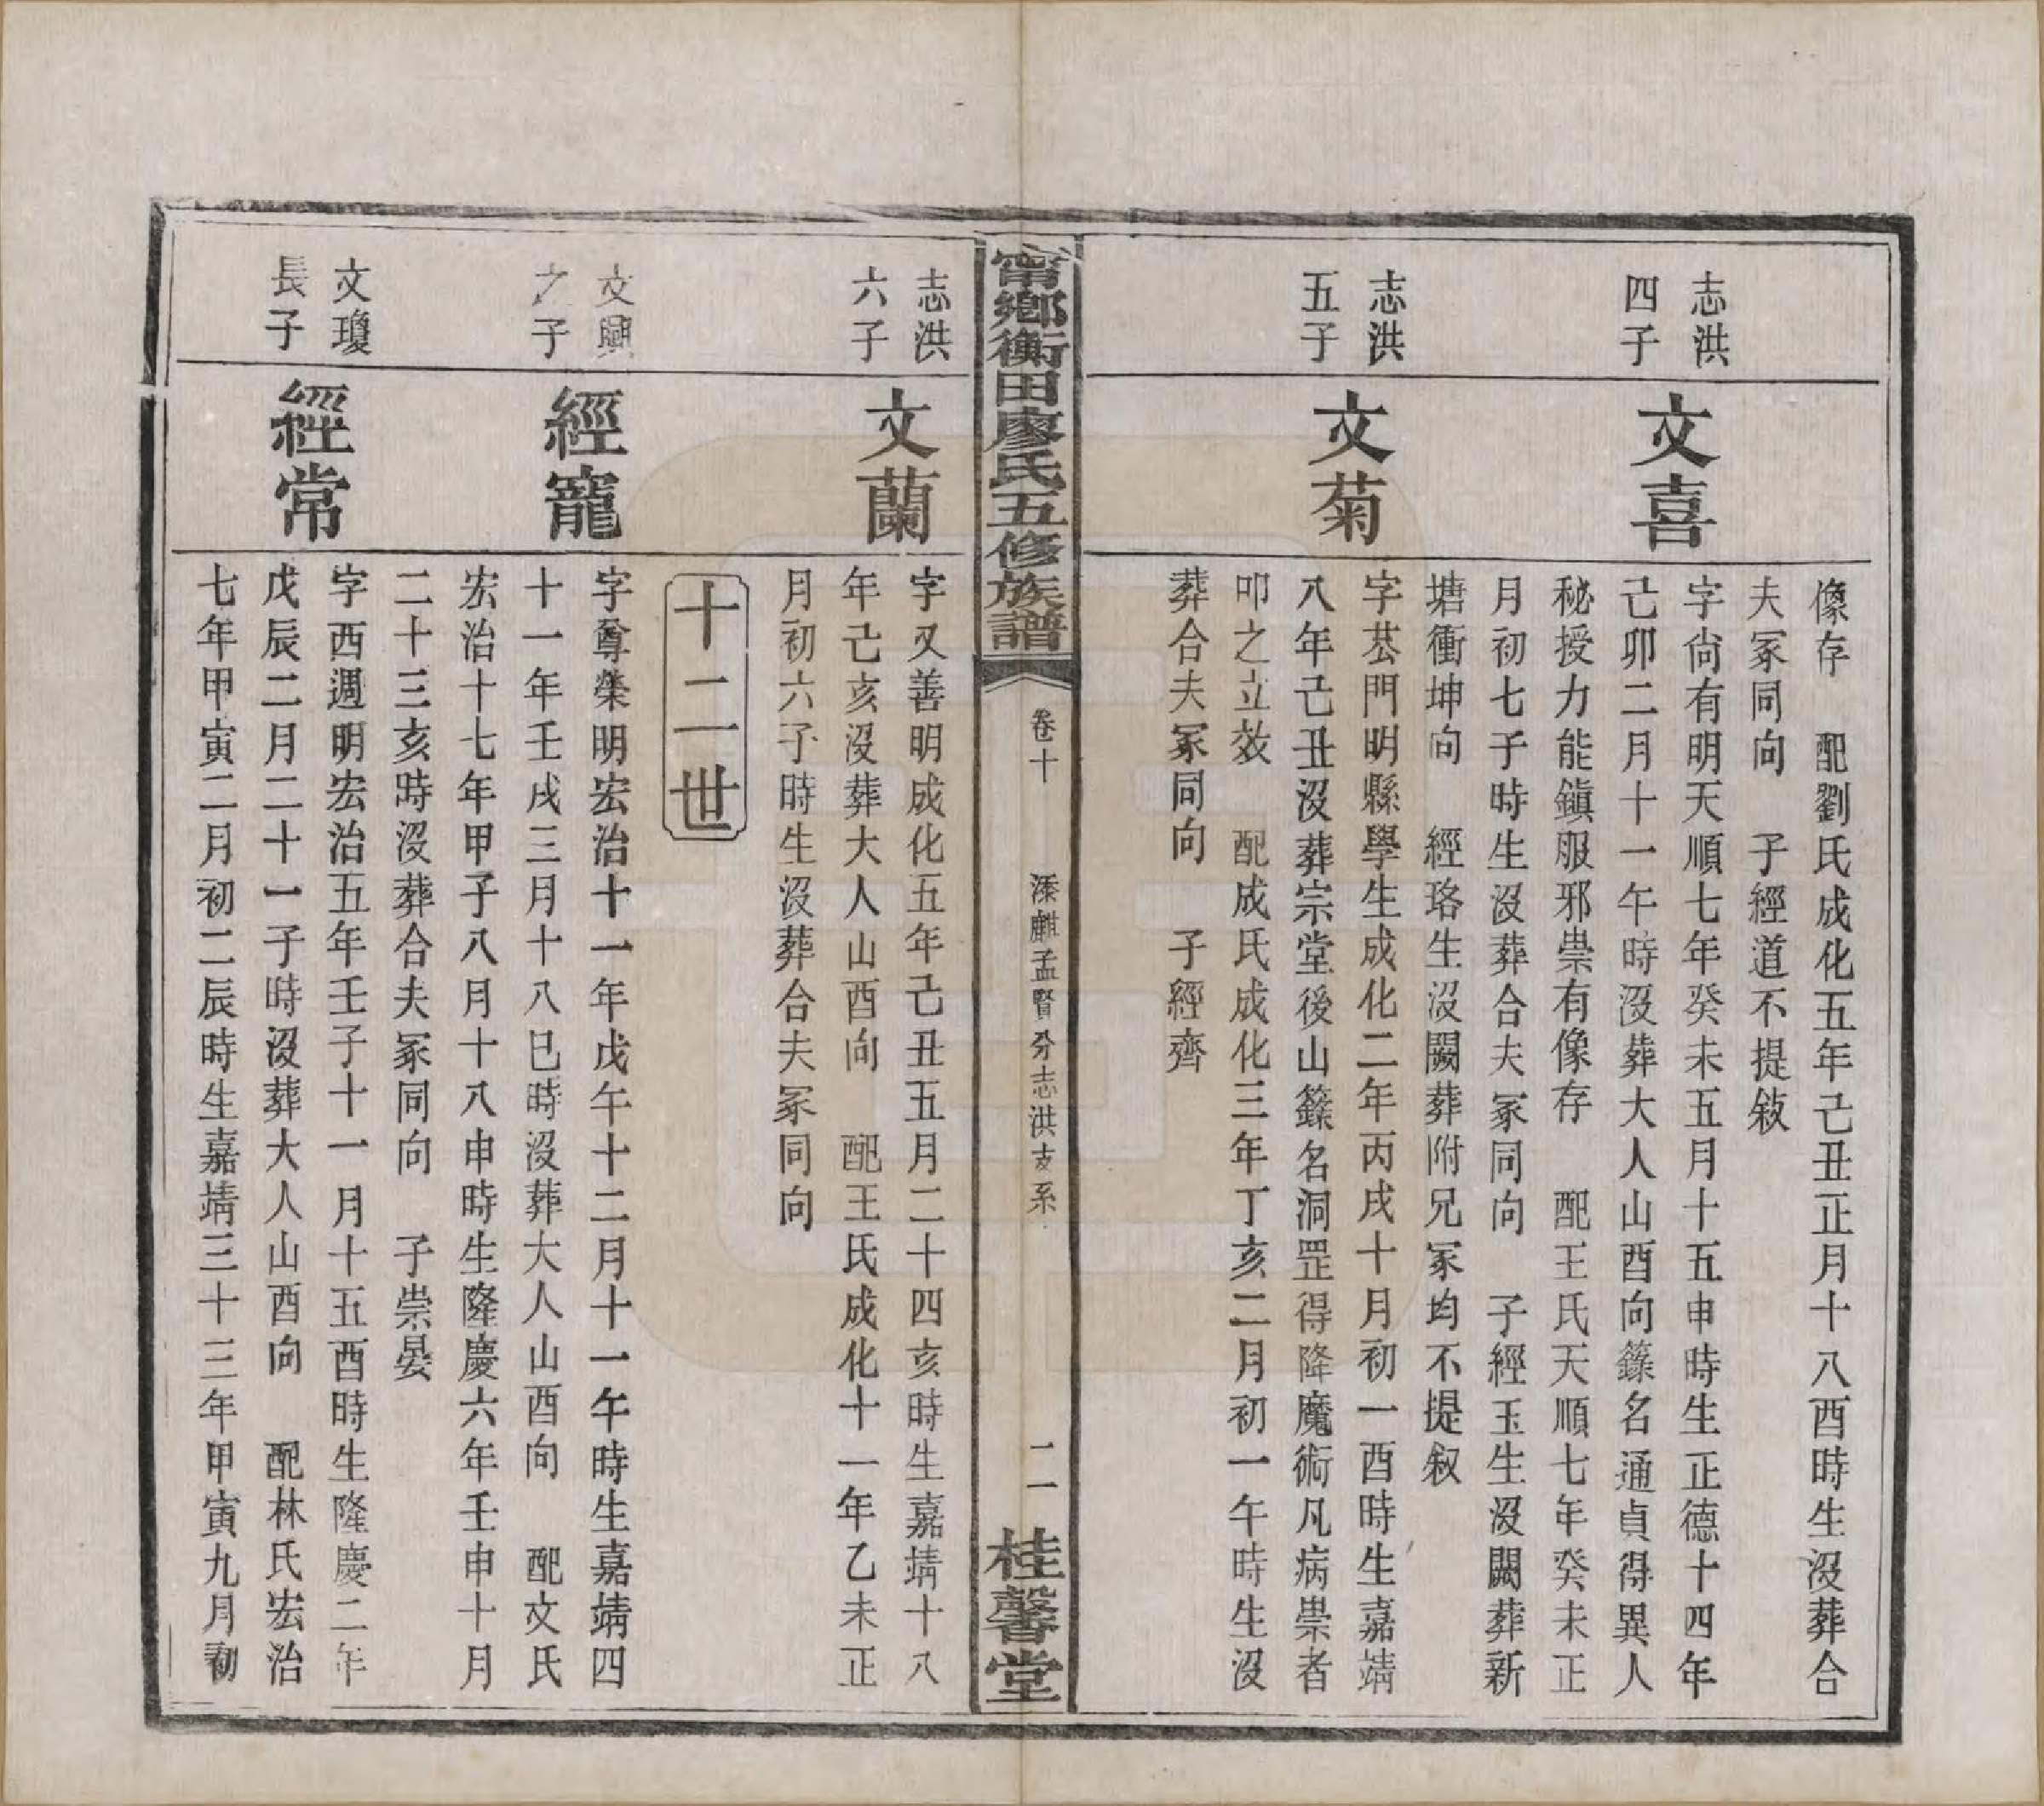 像存　配劉氏成化五年己丑正月十八酉時生沒葬合
夫冢同向　子經道不提敍
志洪
四子
文喜
字尙有明天順七年癸未五月十五申時生正德十四年
己卯二月十一午時沒葬大人山酉向籙名通貞得異人
秘授力能鎭服邪祟有像存　配王氏天順七年癸未正
月初七子時生沒葬合夫冢同向　子經玉生沒闕葬新
塘衝坤向　經珞生沒闕葬附兄冢均不提敍
志洪
五子
文菊
字㳟門明縣學生成化二年丙戌十月初一酉時生嘉靖
八年己丑沒葬宗堂後山籙名洞罡得降魔術凡病祟者
叩之立效　配成氏成化三年丁亥二月初一午時生沒
葬合夫冢同向　子經齊
甯鄉衡田廖氏五修族譜
卷十
溙麒孟賢分志洪支系
二一
桂馨堂
志洪
六子
文蘭
字又善明成化五年己丑五月二十四亥時生嘉靖十八
年己亥沒葬大人山酉向　配王氏成化十一年乙未正
月初六子時生沒葬合夫冢同向
十二世
文興
之子
經寵
字尊榮明宏治十一年戊午十二月十一午時生嘉靖四
十一年壬戌三月十八巳時沒葬大人山酉向　配文氏
宏治十七年甲子八月十八申時生隆慶六年壬申十月
二十三亥時沒葬合夫冢同向　子崇晏
文瓊
長子
經常
字西週明宏治五年壬子十一月十五酉時生隆慶二年
戊辰二月二十一子時沒葬大人山酉向　配林氏宏治
七年甲寅二月初二辰時生嘉靖三十三年甲寅九月初